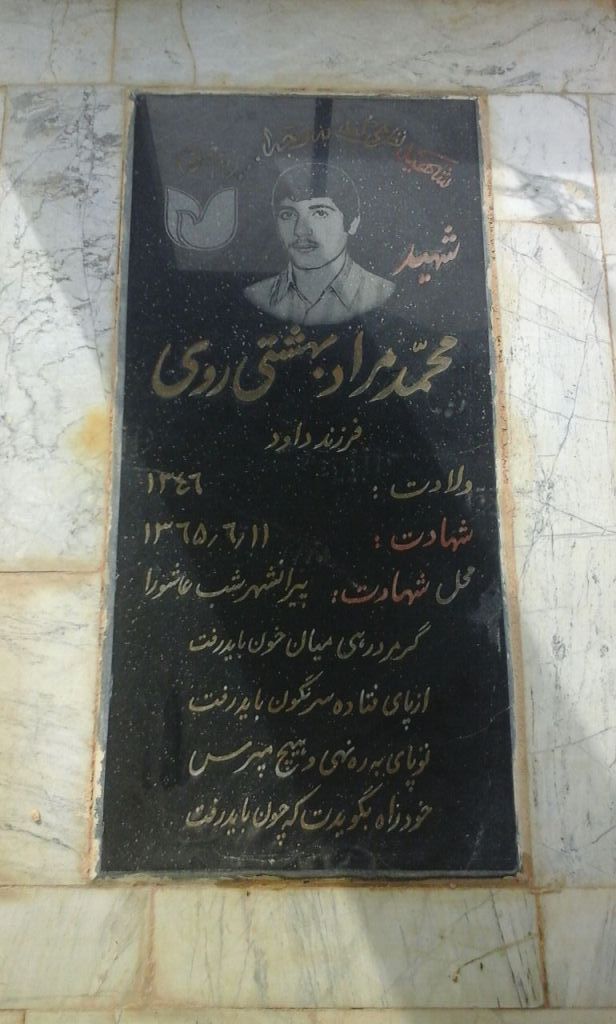 شهیدان
شهید
محمّد مراد بهشتی روی
فرزند داود
ولادت : ١٣٤٦
شهادت : ١٣٦٥/٦/١١
محل شهادت : پیرانشهر شب عاشورا
گر مرد رهی میان خون باید رفت
از پای فتاده سرنگون باید رفت
تو پای به ره نهی و هیچ مپرس
خود راه بگویدت که چون باید رفت